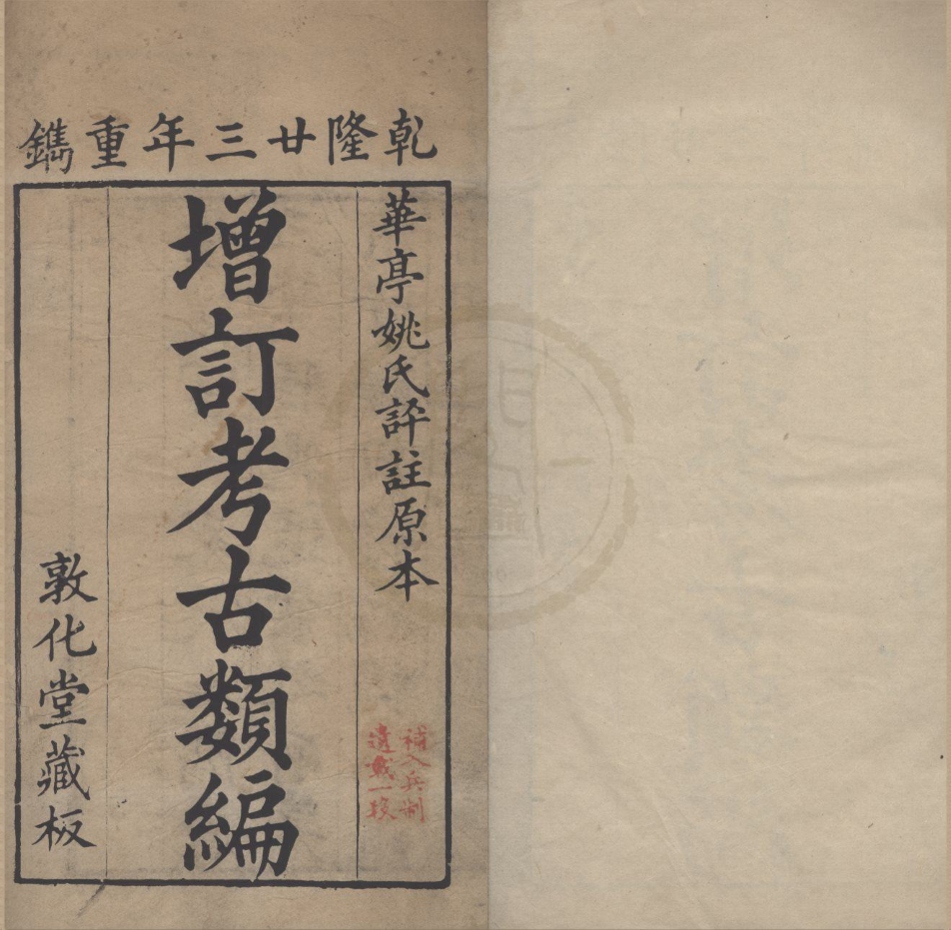 乾隆廿三年重鐫
華亭姚氏評註原本
補入兵制
遺載一段
增訂考古類編
敦化堂藏板